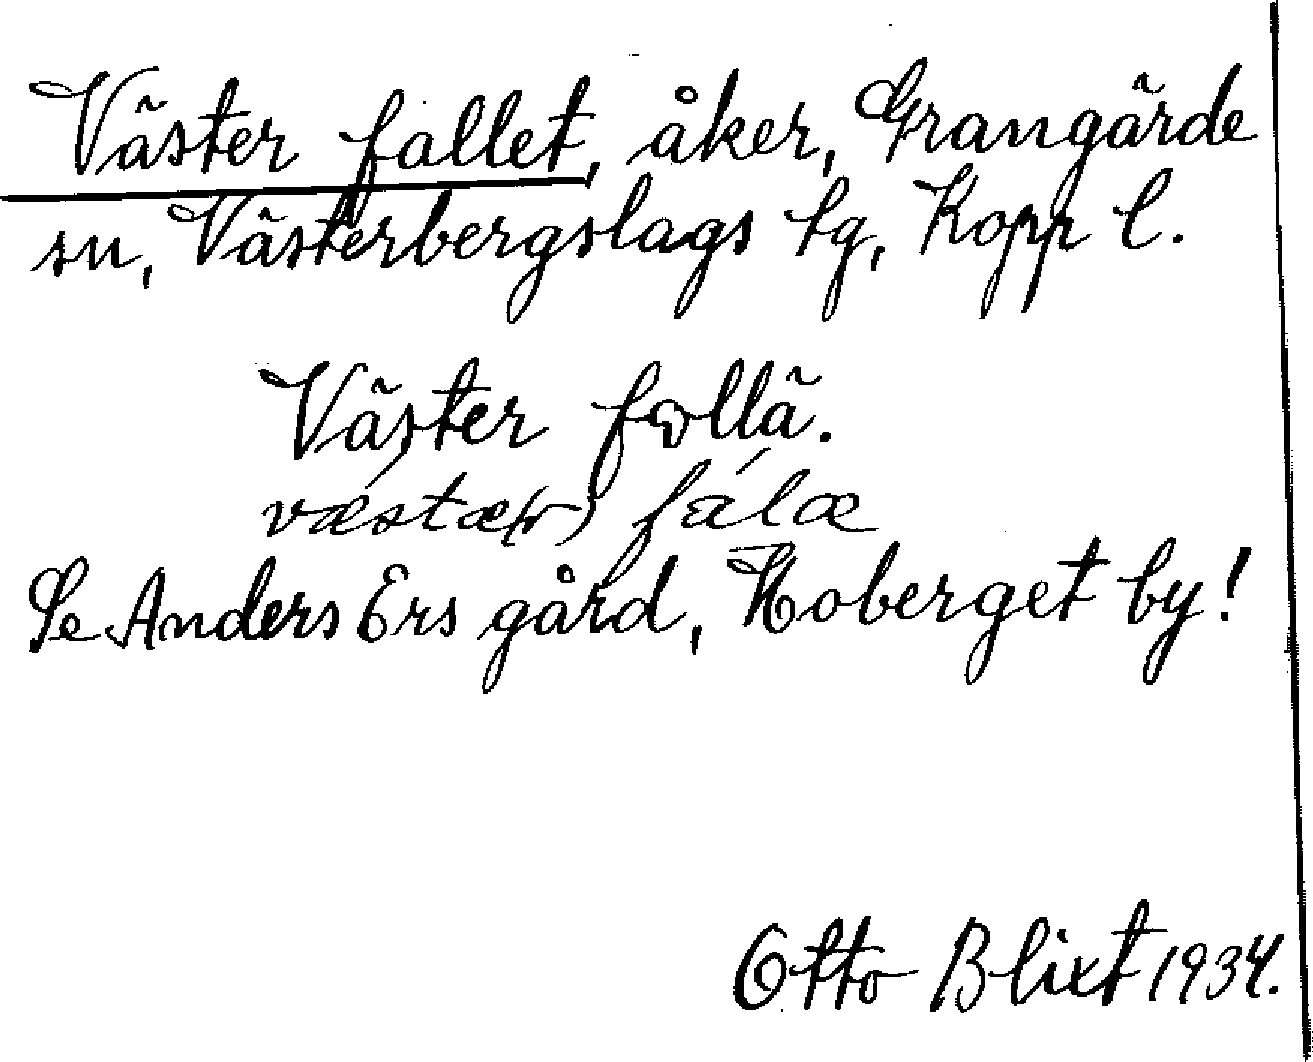 Väster fallet, åker, Grangärde
sn, Västerbergslags tg, Kopp l.
Väster follä.
væstæ(r) fálæ
Se Anders Ers gård, Hoberget by!
Otto Blixt 1934.